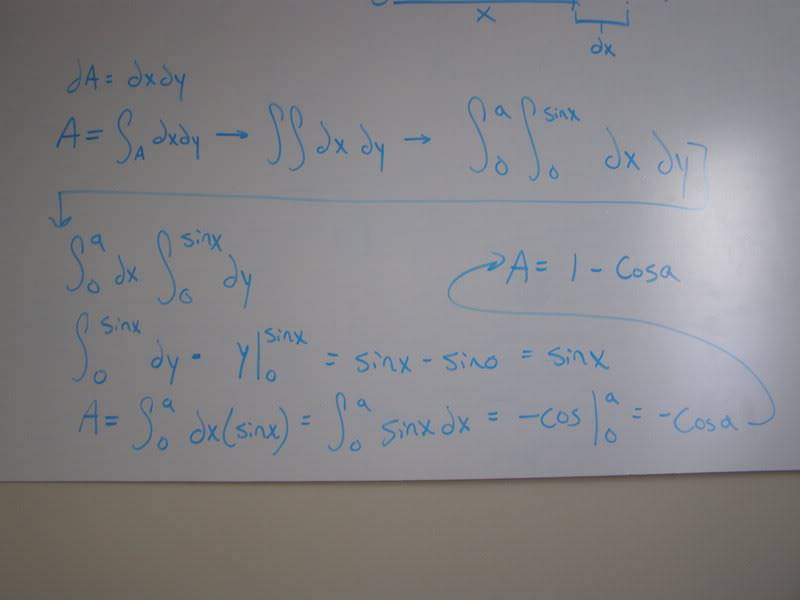 x
dx
dA = dxdy
A = ∫_A dxdy → ∫∫ dx dy → ∫_0^a ∫_0^sinx dx dy
∫_0^a dx ∫_0^sinx dy
A = 1 - cosa
∫_0^sinx dy - y|_0^sinx = sinx - sin0 = sinx
A = ∫_0^a dx(sinx) = ∫_0^a sinx dx = -cos|_0^a = -cosa